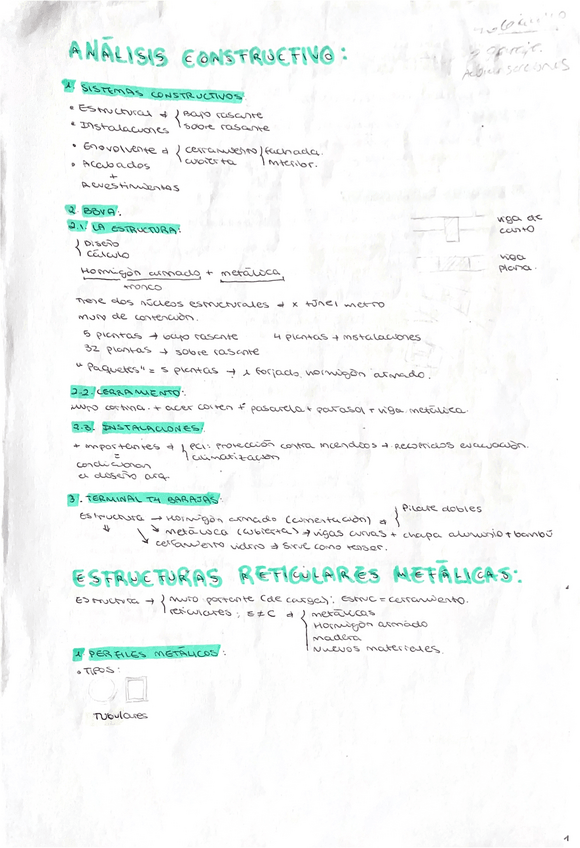 ANÁLISIS CONSTRUCTIVO:
1 SISTEMAS CONSTRUCTIVOS
• Estructural → { Bajo rasante
• Instalaciones { sobre rasante
• Envolvente → { cerramiento { fachada.
• Acabados { cubierta { interior.
+
Revestimientos
2. BBVA.
2.1 LA ESTRUCTURA:
{ Diseño
{ Cálculo
viga de canto
viga plana.
Hormigón armado + metálica
tronco
tiene dos núcleos estructurales → x túnel metro
muro de contención.
5 plantas → bajo rasante 4 plantas → instalaciones
32 plantas → sobre rasante
"Paquetes" = 5 plantas → 1 forjado hormigón armado.
2.2. CERRAMIENTO:
muro cortina. + acer corten + pasarela + parasol + viga metálica.
2.3. INSTALACIONES.
+ importantes → { PCI: Protección contra incendios → Recorridos evacuación.
= { climatización
condicionan
el diseño arq.
3. TERMINAL T4 BARAJAS:
Estructura → Hormigón armado (cimentación) → { Pilares dobles
↘ metálica (cubierta) → vigas curvas + chapa aluminio + bambú
↘ cerramiento vidrio → sirve como tensor.
ESTRUCTURAS RETICULARES METÁLICAS:
Estructura → { muro portante (de carga): estruc = cerramiento.
{ reticulares: E ≠ C → { metálicas
Hormigón armado
madera
Nuevos materiales.
1 PERFILES METÁLICOS:
• TIPOS:
Tubulares
1